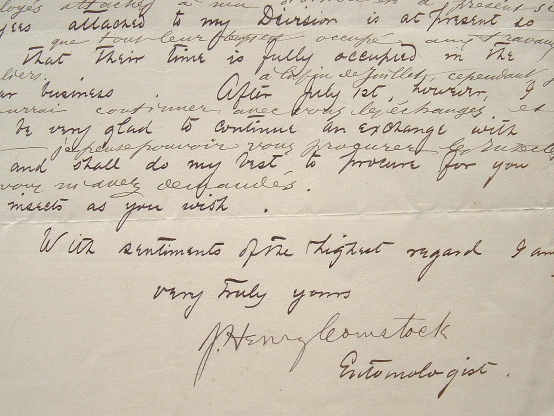 attachés à ma
yees attached to my Decision is at present so
que tout leur temps est occupé aux travaux
that their time is fully occupied in the
à la fin de Juillet, cependant, j
ar business. After July 1st, however, I
ourrai continuer avec vous les échanges et
be very glad to continue an exchange with
je pense pouvoir vous procurer les insectes
and shall do my best to procure for you
vous m'avez demandés.
insects as you wish.
With sentiments of the highest regard I am
very truly yours
J. Henry Comstock
Entomologist.